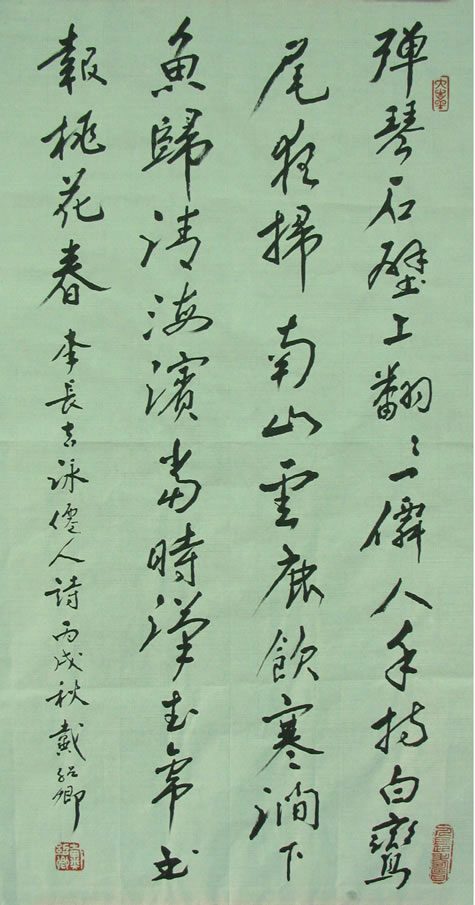 彈琴石壁上翻々一僊人手持白鸞
尾夜掃南山雲鹿飲寒澗下
魚歸清海濱當時漢武帝書
報桃花春 李長吉詠僊人詩丙戌秋戴紹卿